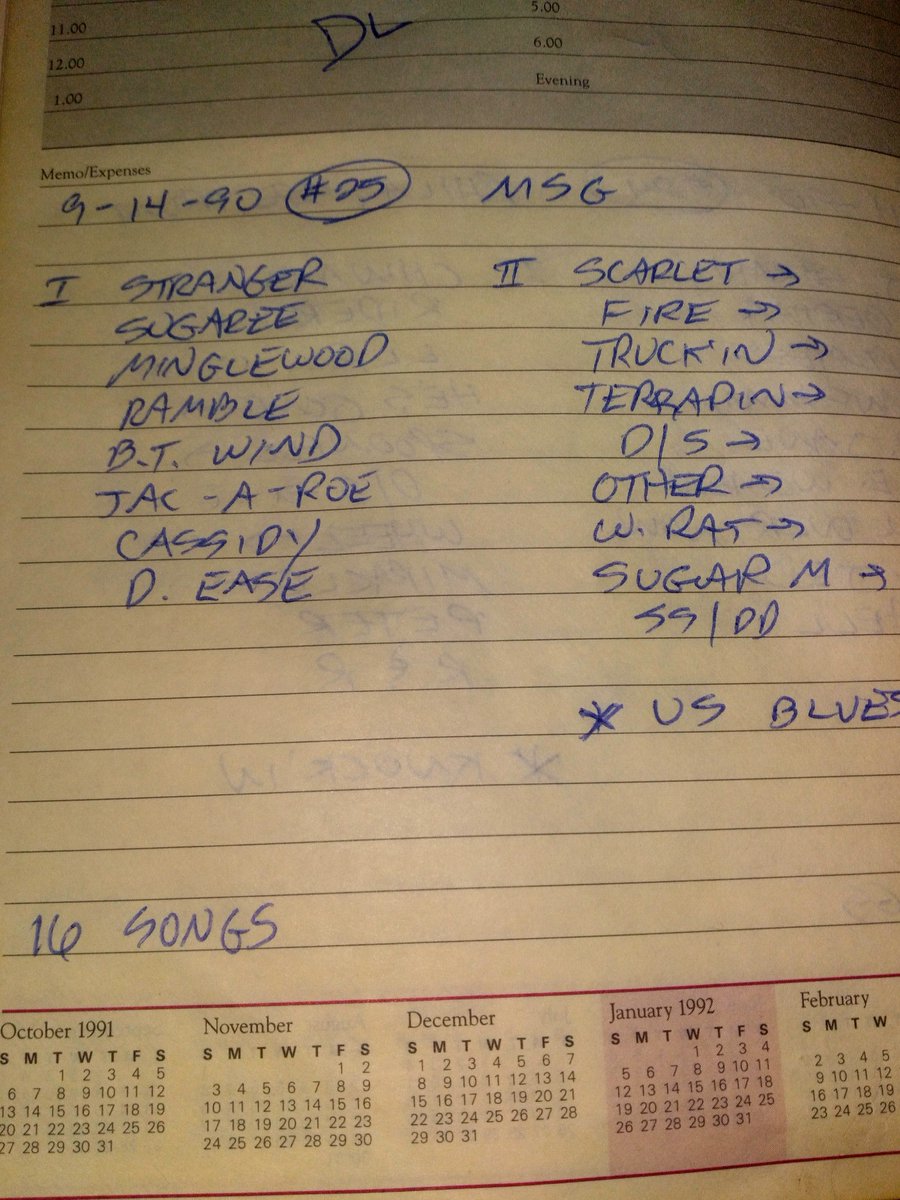 11.00
12.00
1.00
DL
5.00
6.00
Evening
Memo/Expenses
9-14-90 #25 MSG
I STRANGER
SUGAREE
MINGLEWOOD
RAMBLE
B.T. WIND
JAC-A-ROE
CASSIDY
D. EASE
II SCARLET →
FIRE →
TRUCK'IN →
TERRAPIN →
D/S →
OTHER →
W. RAT →
SUGAR M →
SS/DD
* US BLUES
* KNOCK'IN
16 SONGS
October 1991
S M T W T F S
1 2 3 4 5
6 7 8 9 10 11 12
13 14 15 16 17 18 19
20 21 22 23 24 25 26
27 28 29 30 31
November
S M T W T F S
1 2
3 4 5 6 7 8 9
10 11 12 13 14 15 16
17 18 19 20 21 22 23
24 25 26 27 28 29 30
December
S M T W T F S
1 2 3 4 5 6 7
8 9 10 11 12 13 14
15 16 17 18 19 20 21
22 23 24 25 26 27 28
29 30 31
January 1992
S M T W T F S
1 2 3 4
5 6 7 8 9 10 11
12 13 14 15 16 17 18
19 20 21 22 23 24 25
26 27 28 29 30 31
February
S M T W
2 3 4 5
9 10 11 12
16 17 18 19
23 24 25 26